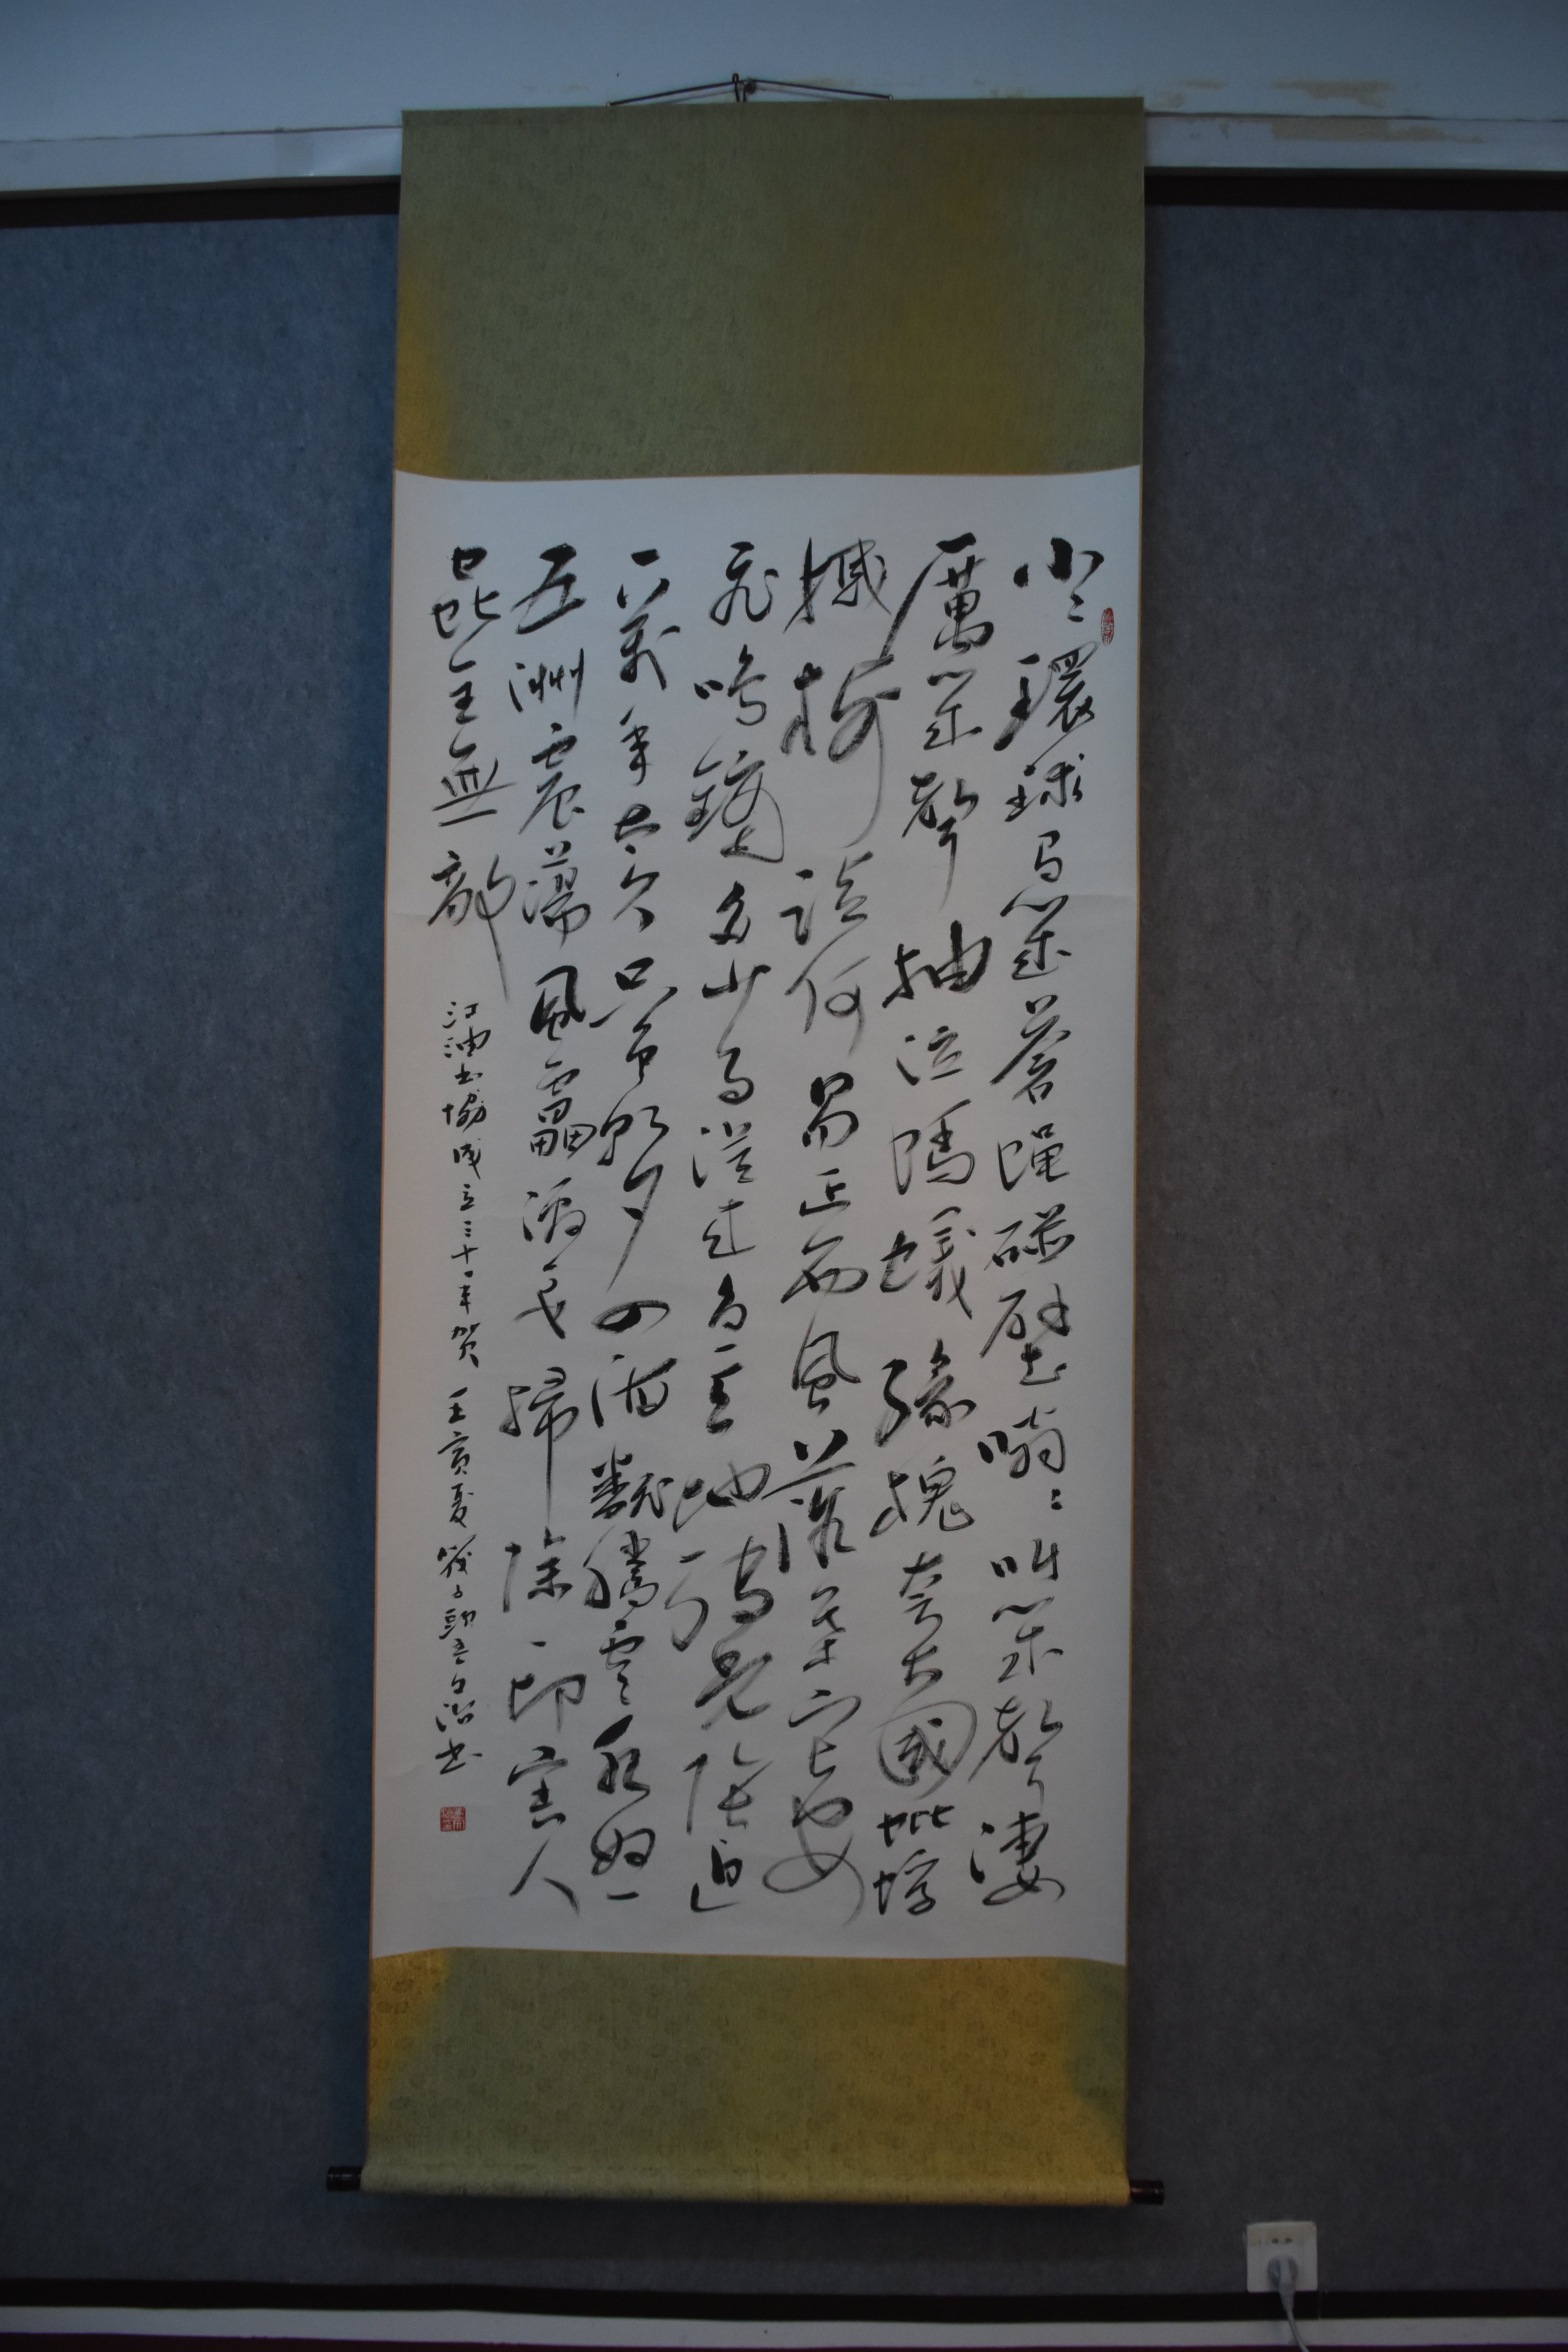 小〻環球有幾蒼蠅碰壁嗡〻叫幾聲淒
厲幾聲抽泣螞蟻緣槐夸大國蚍蜉
撼樹談何易正西風落葉下長安
飛鳴鏑多少事從来急天地轉光陰迫
一萬年太久只争朝夕四海翻騰雲水怒
五洲震蕩風雷激要掃除一切害人
蟲全無敵
江油书協成立三十年贺 壬寅夏 书